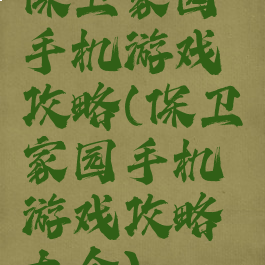 保卫家园
手机游戏
攻略(保卫
家园手机
游戏攻略
大全)